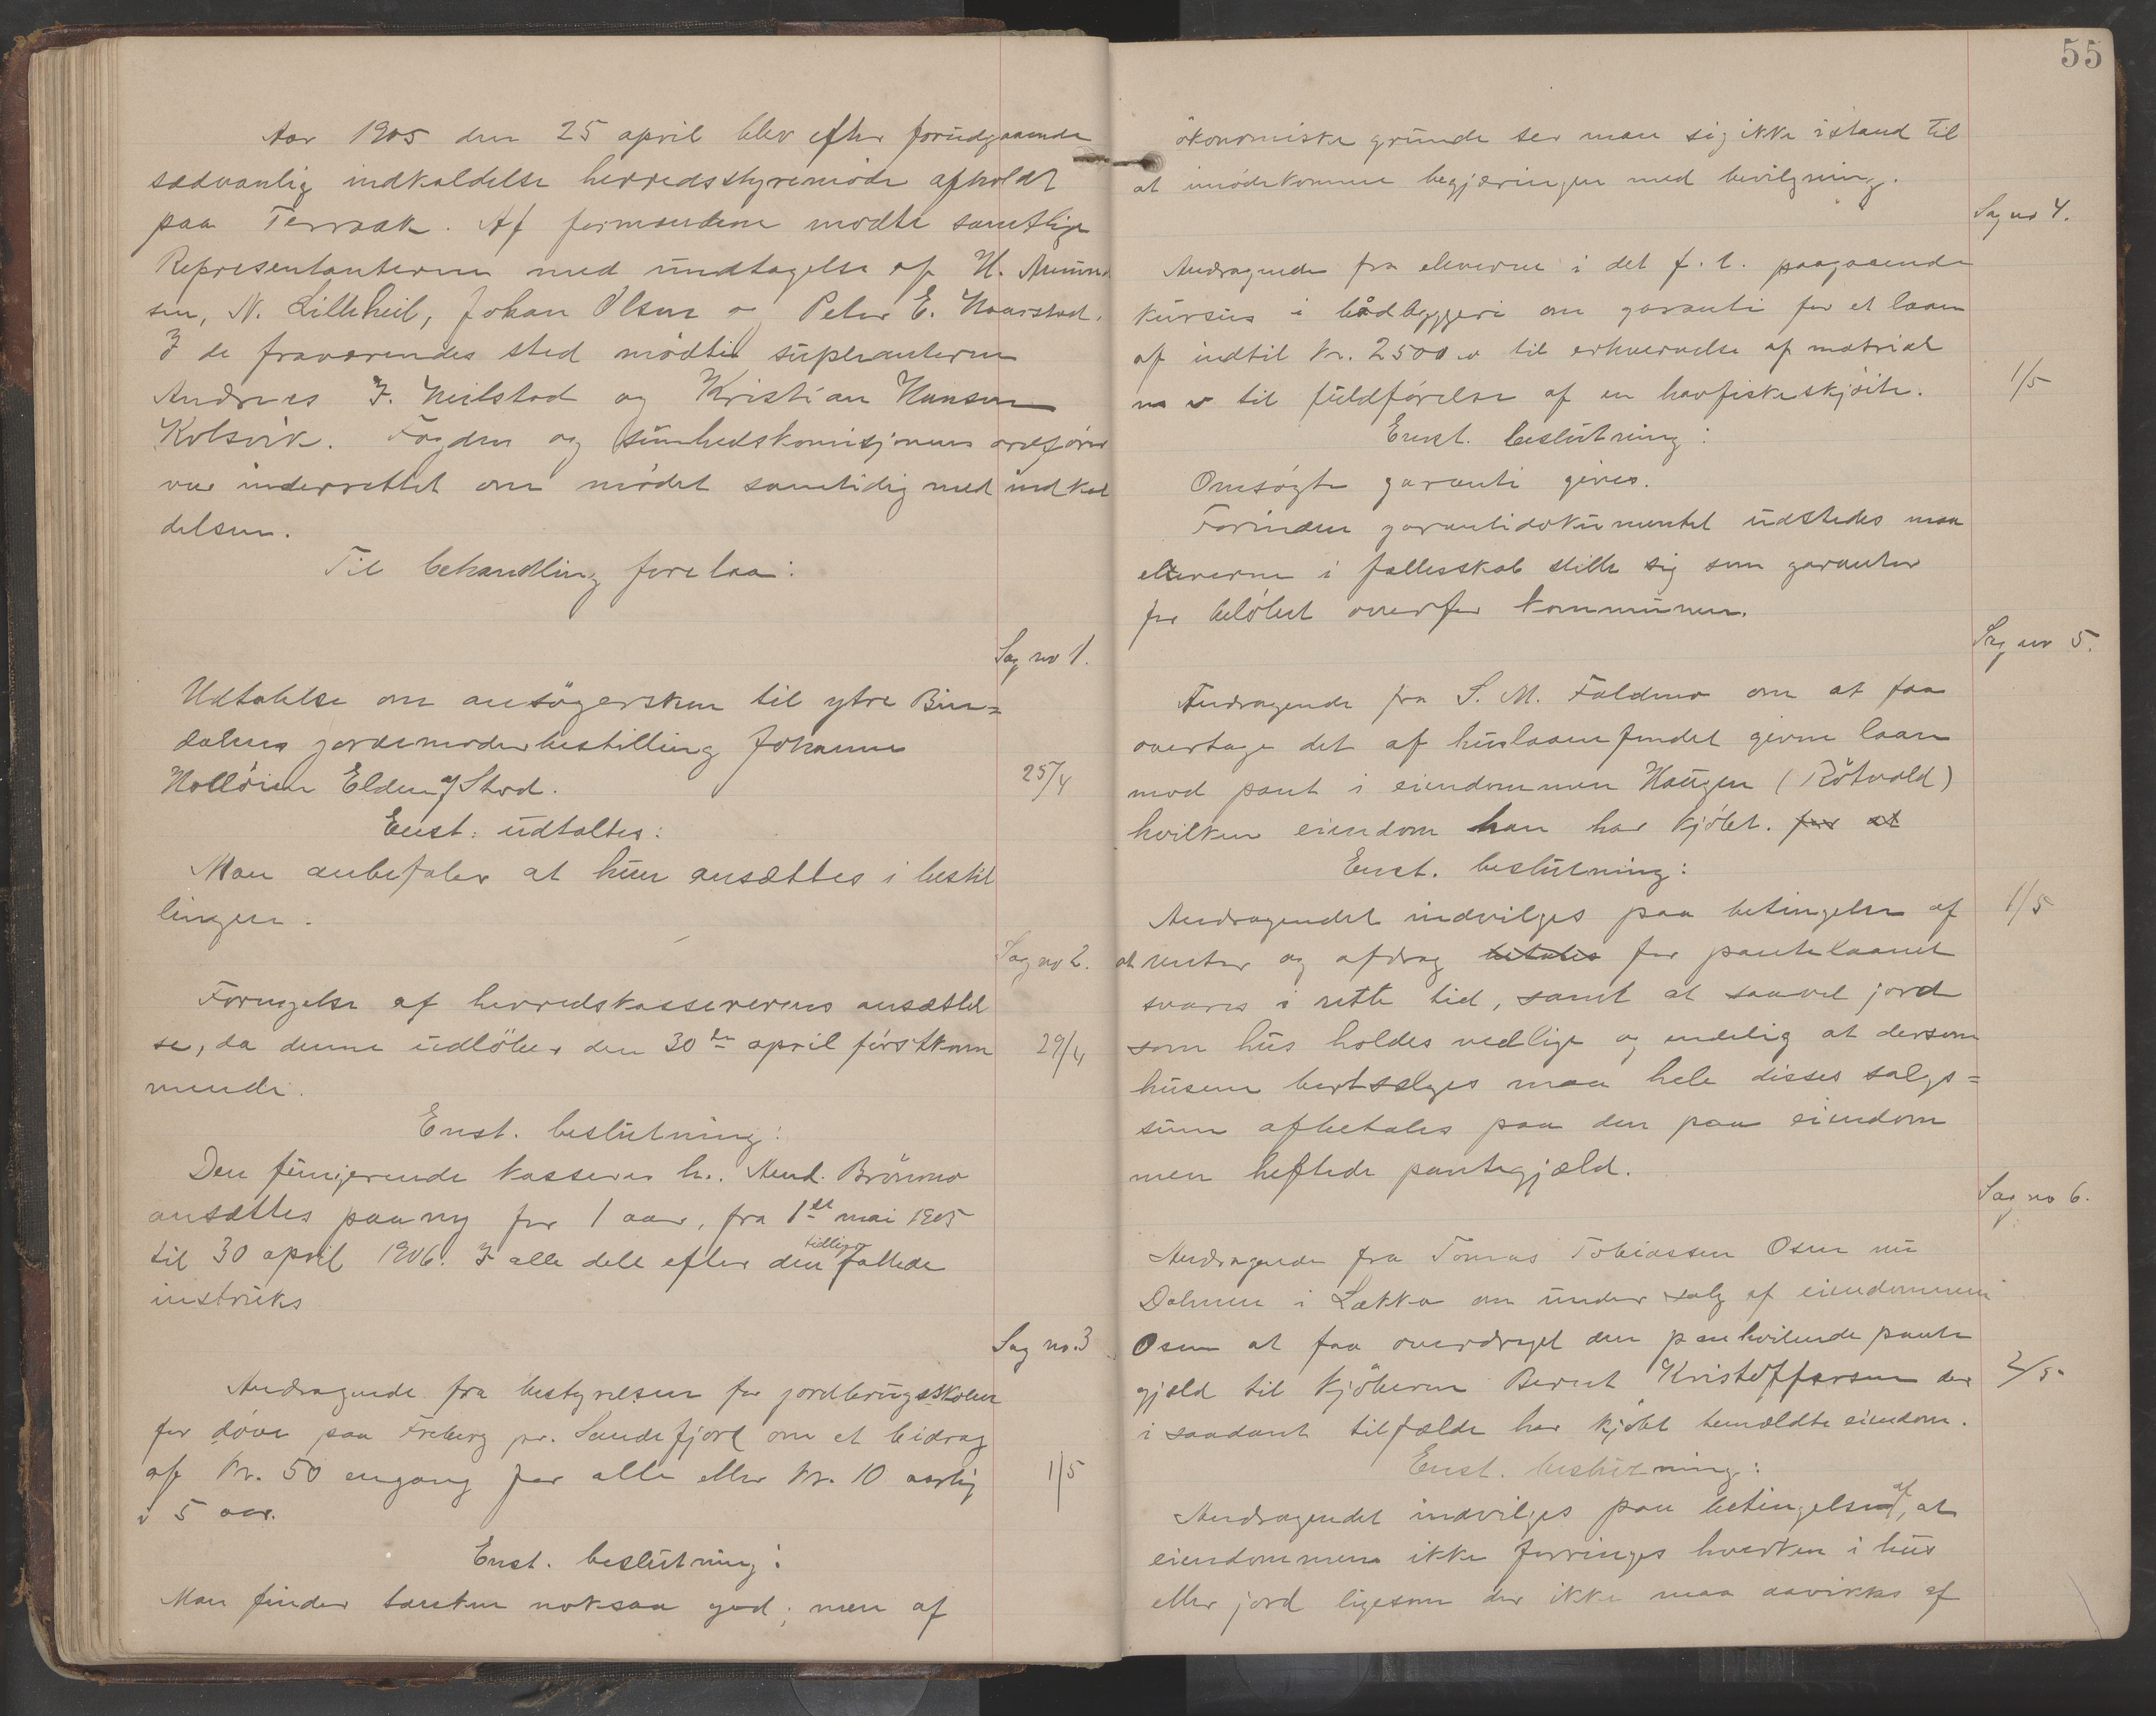 Aar 1905 den 25 april blev efter forudgaaende
sædvanlig indkaldelse herredsstyremöde afholdt
paa Terraak. Af formændene mödte samtlige
Representanterne med undtagelse af H. Amund
sen, N. Lilleheil, Johan Olsen og Peter E. Haarstad.
I de fraværendes sted mödte supleanterne
Andreas J. Heilstad og Kristian Hansen
Kolsvik. Fogden og sundhedskomisjonens ordförer
var underrettet om mödet samtidig med indkal
delsen.
Til behandling forelaa:
Sag no 1.
Udtalelse om ansögersken til ytre Bin=
dalens jordemoderbestilling Johanne
Elden af Stod.
25/4
Enst. udtaltes:
Man anbefaler at hun ansættes i bestil
lingen.
Sag no 2.
Fornyelse af herredskassererens ansættel
se, da denne udlöber den 30te april förstkom
mende.
29/4
Enst. beslutning:
Den fungerende kasserer hr. Amd. Brönmo
ansættes paany for 1 aar, fra 1ste mai 1905
til 30 april 1906. I alle dele efter den tidligere fattede
instruks
Sag no. 3
Andragende fra bestyrelsen for jordbrugsskolen
for döve paa Freberg pr. Sandefjord om et bidrag
af kr. 50 engang for alle eller kr. 10 aarlig
i 5 aar.
1/5
Enst. beslutning:
Man finder tanken noksaa god; men af
55
ökonomiske grunde ser man sig ikke istand til
at imödekomme begjæringen med bevilgning.
Sag no 4.
Andragende fra eleverne i det f. t. paagaaende
kursus i bådbyggeri om garanti for et laan
af indtil kr. 2500 til erhvervelse af matrial
m v til fuldförelse af en havfiskeskjöite.
1/5
Enst. beslutning:
Omsögte garanti gives.
Forinden garantidokumentet udstedes maa
eleverne i fællesskab stille sig som garanter
for belöbet overfor kommunen.
Sag no 5.
Andragende fra S. M. Faldmo om at faa
overtage det af huslaanefondet givne laan
mod pant i eiendommen Haugen (Rötvold)
hvilken eiendom han har kjöbt. for at
Enst. beslutning:
Andragendet indvilges paa betingelse af
1/5
at renter og afdrag betales for pantelaanet
svares i rette tid, samt at saavel jord
som hus holdes vedlige og endelig at dersom
husene bortsælges maa hele disses salgs=
sum afbetales paa den paa eiendom
men heftede pantegjæld.
Sag no 6.
Andragende fra Tomas Tobiassen Osen nu
Dalmen i Lækka om under salg af eiendommen
Osen at faa overdraget den paahvilende pante
gjæld til kjöberen Bernt Kristoffersen der
i saadant tilfælde har kjöbt bemældte eiendom.
2/5
Enst. beslutning:
Andragendet indvilges paa betingelse af, at
eiendommen ikke forringes hverken i hus
eller jord ligesom der ikke maa aavirkes af